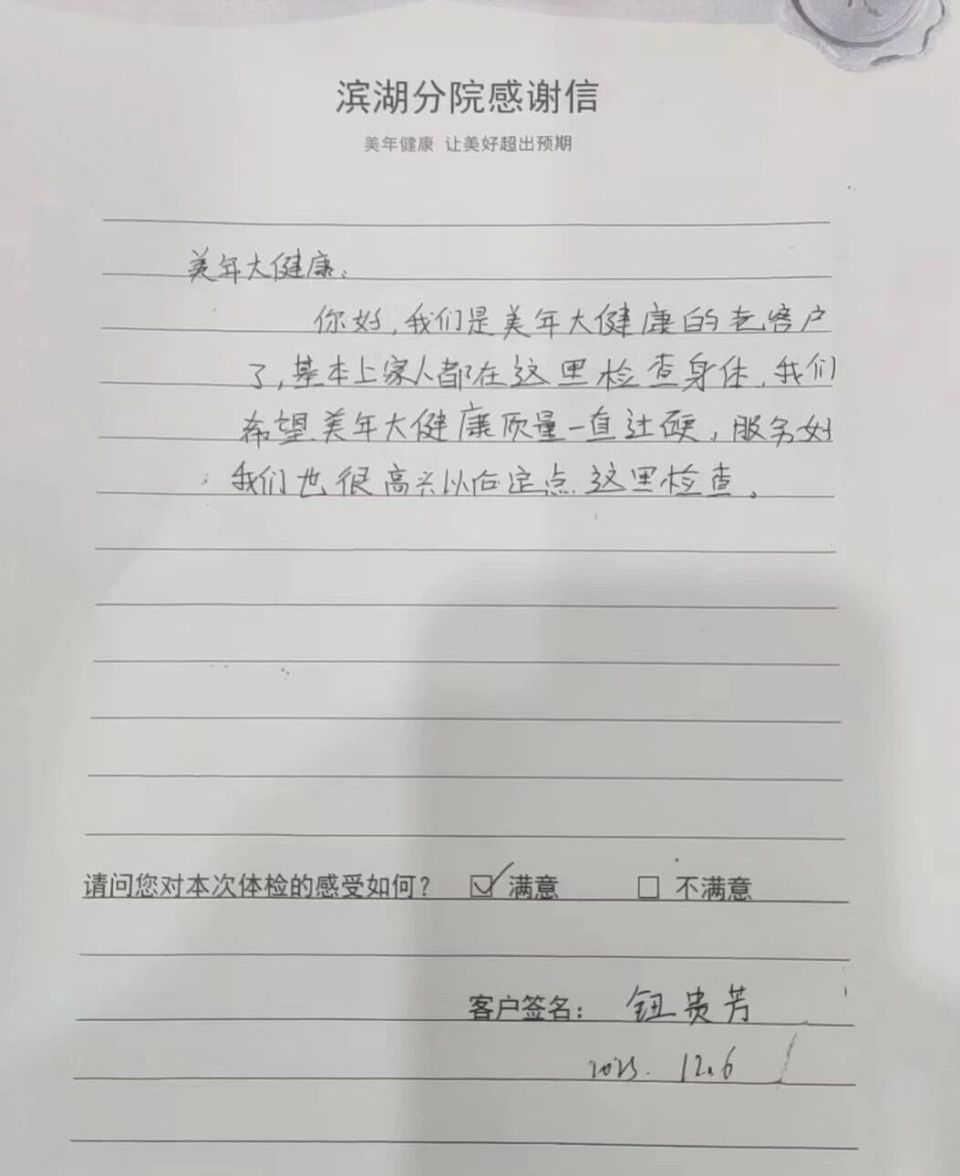 滨湖分院感谢信
美年健康 让美好超出预期
美年大健康:
你好,我们是美年大健康的老客户
了,基本上家人都在这里检查身体,我们
希望美年大健康质量一直过硬,服务好
我们也很高兴以后定点这里检查。
请问您对本次体检的感受如何? ☑ 满意 □ 不满意
客户签名: 钮贵芳
2023. 12.6